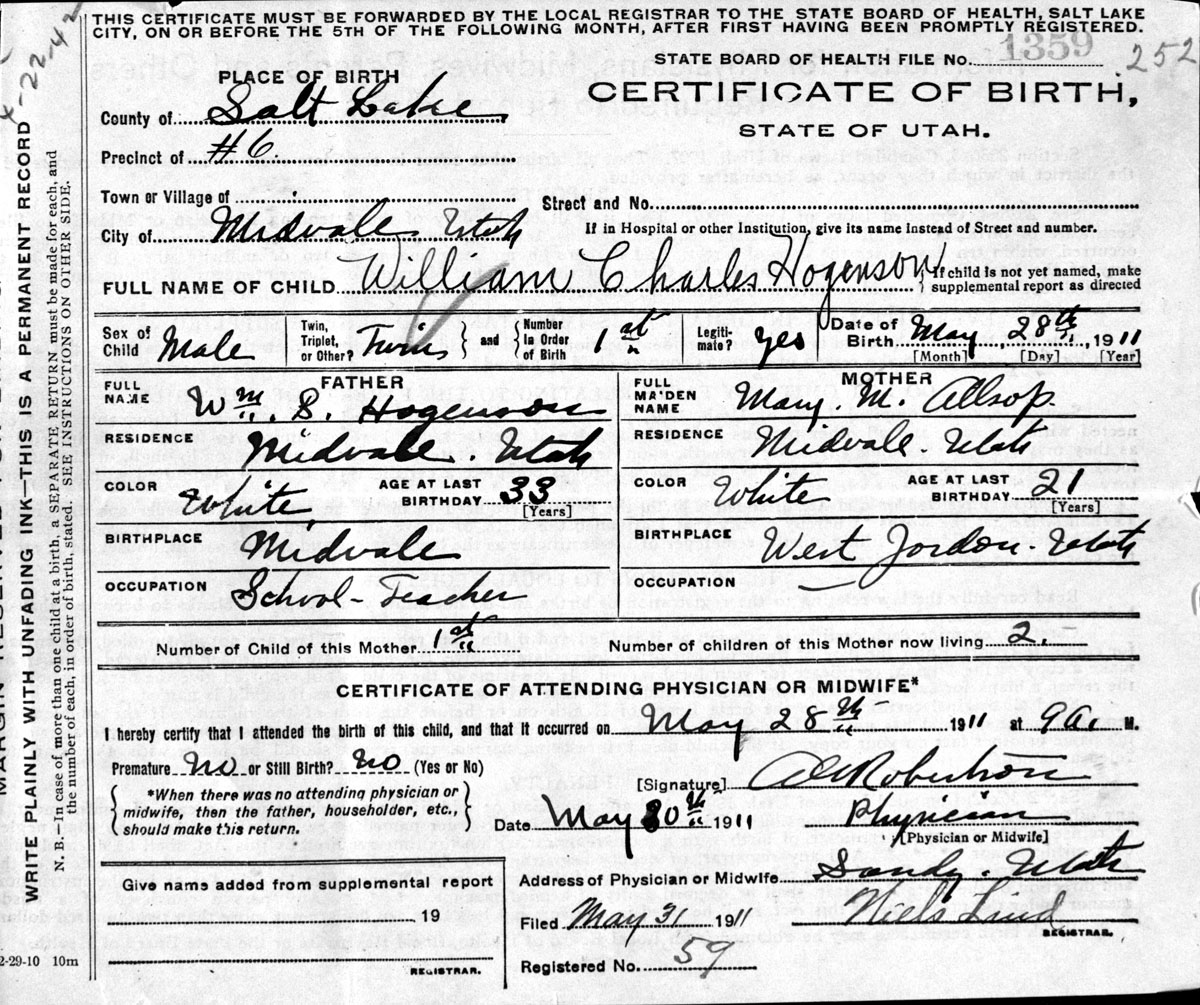 THIS CERTIFICATE MUST BE FORWARDED BY THE LOCAL REGISTRAR TO THE STATE BOARD OF HEALTH, SALT LAKE
CITY, ON OR BEFORE THE 5TH OF THE FOLLOWING MONTH, AFTER FIRST HAVING BEEN PROMPTLY REGISTERED.
STATE BOARD OF HEALTH FILE No. 1359
252
PLACE OF BIRTH
CERTIFICATE OF BIRTH,
STATE OF UTAH.
County of Salt Lake
Precinct of #6
Town or Village of
Street and No.
City of Midvale Utah
If in Hospital or other Institution, give its name instead of Street and number.
FULL NAME OF CHILD William Charles Hogenson { If child is not yet named, make
supplemental report as directed
Sex of Child Male
Twin, Triplet, or Other? Twin
and
Number in Order of Birth 1st
Legiti-mate? yes
Date of Birth May 28th, 1911
[Month] [Day] [Year]
FATHER
FULL NAME Wm. S. Hogenson
RESIDENCE Midvale. Utah
COLOR White
AGE AT LAST BIRTHDAY 33
[Years]
BIRTHPLACE Midvale
OCCUPATION School-Teacher
MOTHER
FULL MAIDEN NAME Mary. M. Allsop.
RESIDENCE Midvale Utah
COLOR White
AGE AT LAST BIRTHDAY 21
[Years]
BIRTHPLACE West Jordon. Utah
OCCUPATION
Number of Child of this Mother 1st
Number of children of this Mother now living 2.
CERTIFICATE OF ATTENDING PHYSICIAN OR MIDWIFE*
I hereby certify that I attended the birth of this child, and that it occurred on May 28th 1911 at 9 a. M.
Premature no or Still Birth? no (Yes or No)
*When there was no attending physician or
midwife, then the father, householder, etc.,
should make this return.
[Signature] Robertson
Date May 30th 1911
Physician
[Physician or Midwife]
Address of Physician or Midwife Sandy. Utah
Give name added from supplemental report
19
REGISTRAR.
Filed May 31 1911
Niels Lind
REGISTRAR.
Registered No. 59
2-29-10 10m
WRITE PLAINLY WITH UNFADING INK—THIS IS A PERMANENT RECORD
N. B.—In case of more than one child at a birth, a SEPARATE RETURN must be made for each, and
the number of each, in order of birth, stated. SEE INSTRUCTIONS ON OTHER SIDE.